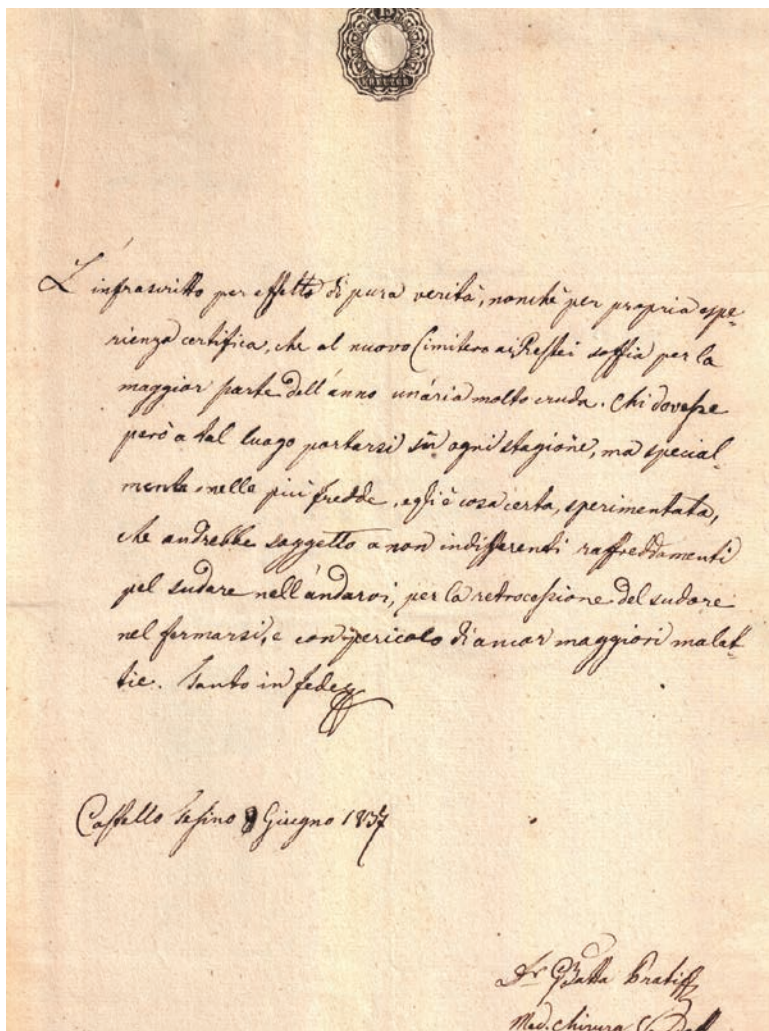 15
KREUTZER
L'infrascritto per effetto di pura verità, nonchè per propria espe-
rienza certifica, che al nuovo Cimitero ai Prestei soffia per la
maggior parte dell'anno un'aria molto cruda. Chi dovesse
però a tal luogo portarsi in ogni stagione, ma special-
mente nelle più fredde, egli è cosa certa, sperimentata,
che andrebbe soggetto a non indifferenti raffreddamenti
pel sudare nell'andarvi, per la retrocessione del sudore
nel fermarsi, e con pericolo di ancor maggiori malat-
tie. Tanto in fede
Castello Tesino Giugno 1837
Dr GBatta Prati
Med. Chirurg